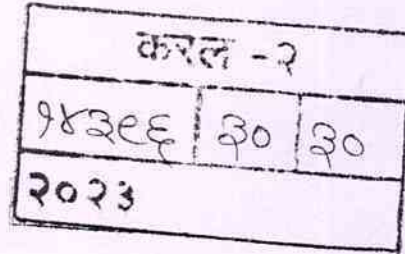 करल - २
१४३९६ ३० ३०
२०२३